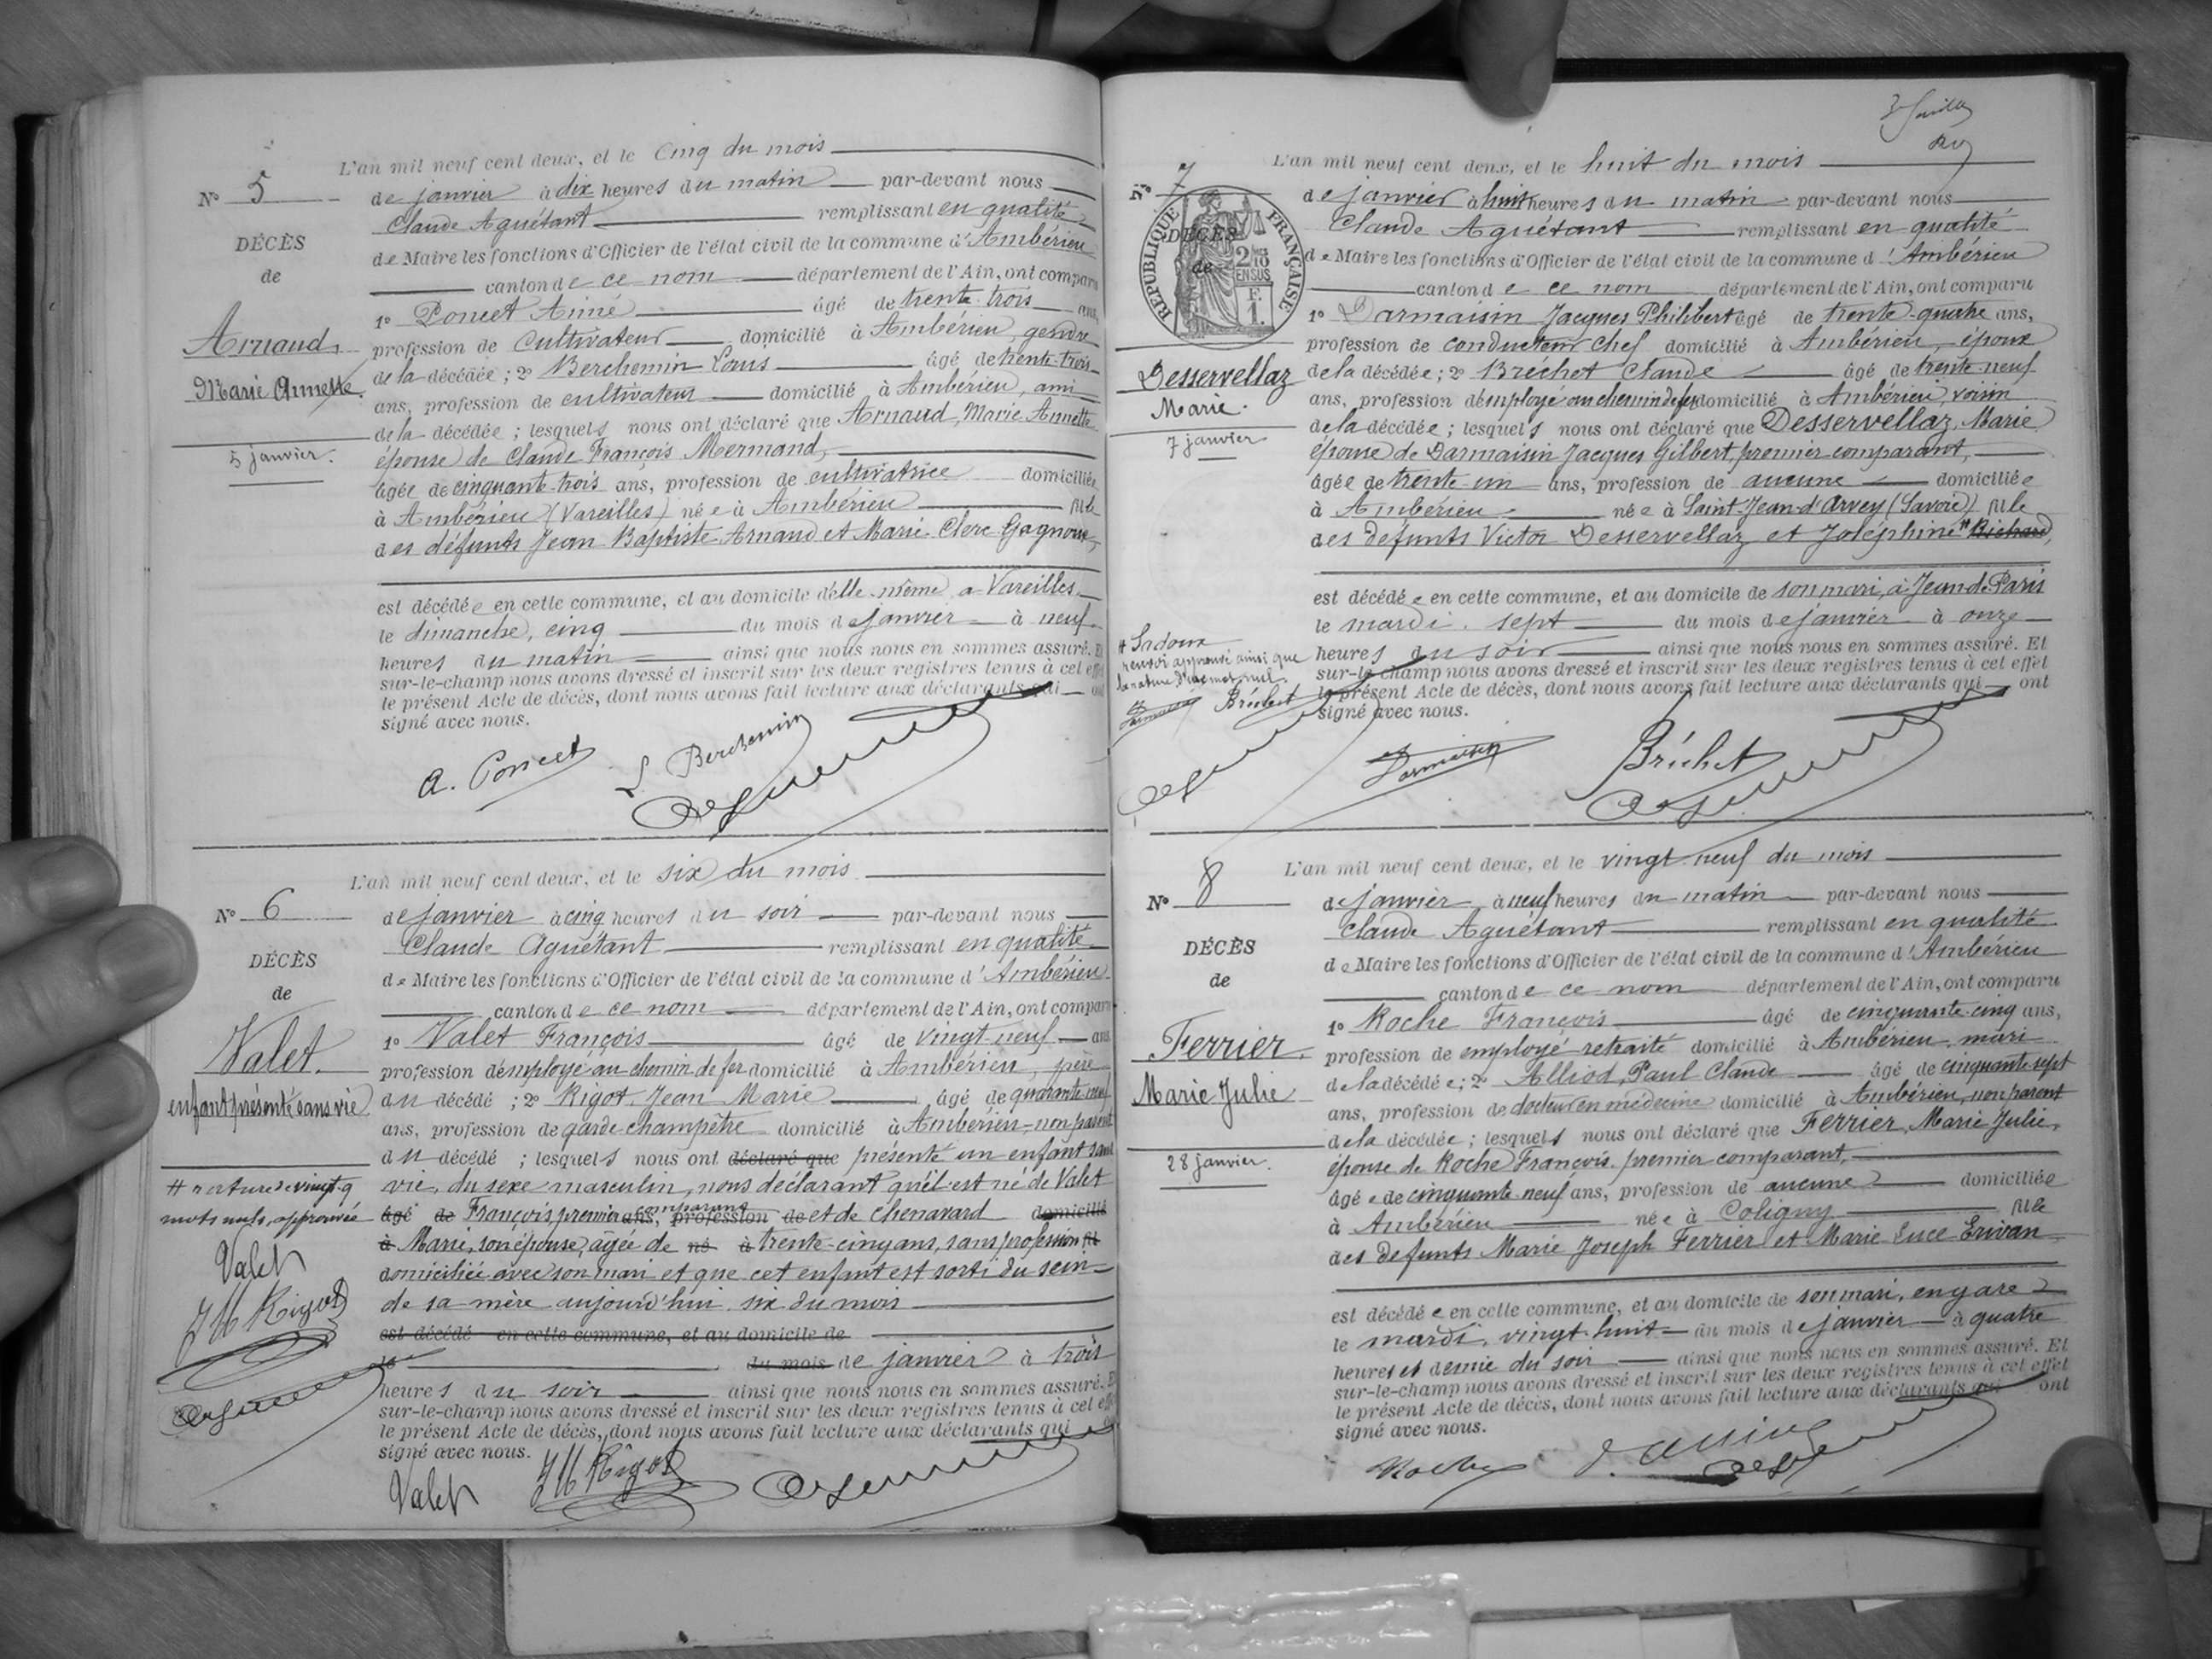 L'an mil neuf cent deux, et le cinq du mois
N° 5
de janvier à dix heures du matin par-devant nous
Claude Aguétant remplissant en qualité
DÉCÈS
de Maire les fonctions d'Officier de l'état civil de la commune d'Ambérieu
de
canton de ce nom département de l'Ain, ont comparu
1° Poncet Aimé âgé de trente-trois ans,
Arnaud,
profession de cultivateur domicilié à Ambérieu, gendre
de la décédée ; 2° Berchemin Louis âgé de trente-trois
Marie Annette.
ans, profession de cultivateur domicilié à Ambérieu, ami
de la décédée ; lesquels nous ont déclaré que Arnaud, Marie Annette
5 janvier.
épouse de Claude François Mermand,
âgée de cinquante-trois ans, profession de cultivatrice domiciliée
à Ambérieu (Vareilles) née à Ambérieu fille
des défunts Jean Baptiste Arnaud et Marie Clerc Gagnoux,
est décédée en cette commune, et au domicile d'elle-même à Vareilles
le dimanche, cinq du mois de janvier à neuf
heures du matin ainsi que nous nous en sommes assuré. Et
sur-le-champ nous avons dressé et inscrit sur les deux registres tenus à cet effet
le présent Acte de décès, dont nous avons fait lecture aux déclarants qui ont
signé avec nous.
A. Poncet
L Berchemin
L'an mil neuf cent deux, et le six du mois
N° 6
de janvier à cinq heures du soir par-devant nous
Claude Aguétant remplissant en qualité
DÉCÈS
de Maire les fonctions d'Officier de l'état civil de la commune d'Ambérieu
de
canton de ce nom département de l'Ain, ont comparu
Valet.
1° Valet François âgé de vingt-neuf ans
profession d'employé au chemin de fer domicilié à Ambérieu, père
enfant présenté sans vie
du décédé ; 2° Rigot Jean Marie âgé de quarante-neuf
ans, profession de garde-champêtre domicilié à Ambérieu, non parent
du décédé ; lesquels nous ont déclaré que présenté un enfant sans
# rature de vingt-q
vie, du sexe masculin, nous déclarant qu'il est né de Valet
mots nuls, approuvée
âgé de François, premier comparant ans, profession de et de Chenavard domicilié
à Marie, son épouse, âgée de né à trente-cinq ans, sans profession fil
Valet
domiciliée avec son mari et que cet enfant est sorti du sein
JM Rigot
de sa mère aujourd'hui six du mois
est décédé en cette commune, et au domicile de
le du mois de janvier à trois
heures du soir ainsi que nous nous en sommes assuré. Et
sur-le-champ nous avons dressé et inscrit sur les deux registres tenus à cet effet
le présent Acte de décès, dont nous avons fait lecture aux déclarants qui
signé avec nous.
Valet
JM Rigot
L'an mil neuf cent deux, et le huit du mois
N° 7
de janvier à huit heures du matin par-devant nous
RÉPUBLIQUE FRANÇAISE
Claude Aguétant remplissant en qualité
DÉCÈS
2/10 EN SUS
de
de Maire les fonctions d'Officier de l'état civil de la commune d'Ambérieu
canton de ce nom département de l'Ain, ont comparu
1° Darmaisin Jacques Philibert âgé de trente-quatre ans,
profession de conducteur chef domicilié à Ambérieu, époux
Desservellaz
de la décédée ; 2° Bréchet Claude âgé de trente-neuf
Marie.
ans, profession d'employé au chemin de fer domicilié à Ambérieu, voisin
de la décédée ; lesquels nous ont déclaré que Desservellaz, Marie
7 janvier
épouse de Darmaisin Jacques Gilbert, premier comparant,
âgée de trente-un ans, profession de aucune domiciliée
à Ambérieu née à Saint-Jean-d'Arvey (Savoie) fille
des défunts Victor Desservellaz et Joséphine # Richard,
est décédée en cette commune, et au domicile de son mari, à Jean-de-Paris
le mardi, sept du mois de janvier à onze
# Sadoux
heures du soir ainsi que nous nous en sommes assuré. Et
renvoi approuvé ainsi que
sur-le-champ nous avons dressé et inscrit sur les deux registres tenus à cet effet
la rature d'un mot nul.
le présent Acte de décès, dont nous avons fait lecture aux déclarants qui ont
Darmaisin Bréchet
signé avec nous.
Darmaisin
Bréchet
L'an mil neuf cent deux, et le vingt-neuf du mois
N° 8
de janvier, à neuf heures du matin par-devant nous
Claude Aguétant remplissant en qualité
DÉCÈS
de Maire les fonctions d'Officier de l'état civil de la commune d'Ambérieu
de
canton de ce nom département de l'Ain, ont comparu
1° Roche François âgé de cinquante-cinq ans,
Ferrier,
profession de employé retraité domicilié à Ambérieu, mari
de la décédée ; 2° Alliod, Paul Claude âgé de cinquante-sept
Marie Julie
ans, profession de docteur en médecine domicilié à Ambérieu, non parent
de la décédée ; lesquels nous ont déclaré que Ferrier, Marie Julie,
28 janvier.
épouse de Roche François, premier comparant,
âgée de cinquante-neuf ans, profession de aucune domiciliée
à Ambérieu née à Coligny fille
des défunts Marie Joseph Ferrier et Marie Luce Erivan
est décédée en cette commune, et au domicile de son mari, en gare
le mardi, vingt-huit du mois de janvier à quatre
heures et demie du soir ainsi que nous nous en sommes assuré. Et
sur-le-champ nous avons dressé et inscrit sur les deux registres tenus à cet effet
le présent Acte de décès, dont nous avons fait lecture aux déclarants qui ont
signé avec nous.
Roche